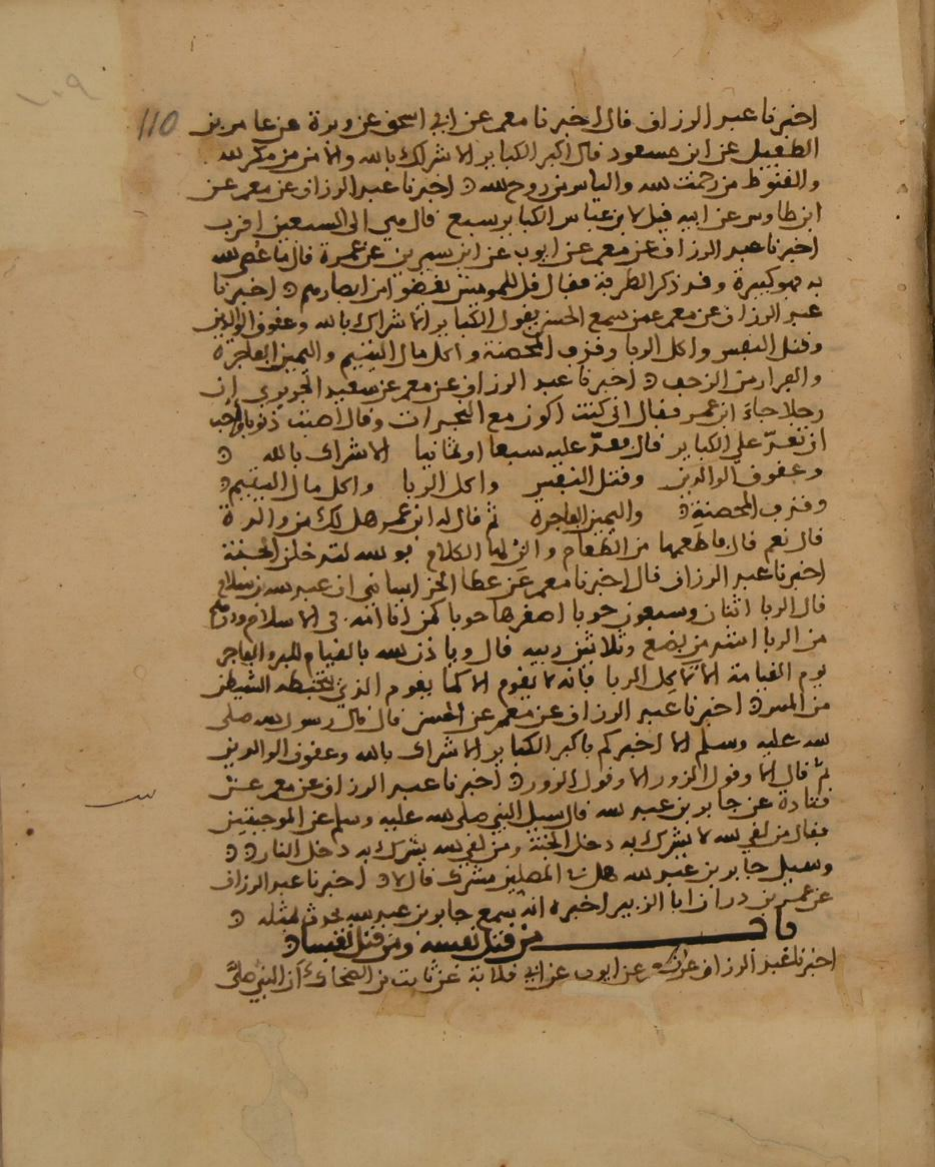 110
اخبرنا عبد الرزاق قال اخبرنا معمر عن ابي اسحق عن وبرة عن عامر بن
الطفيل عن ابن مسعود قال اكبر الكبائر الاشراك بالله والامن من مكر الله
والقنوط من رحمت الله والياس من روح الله اخبرنا عبد الرزاق عن معمر عن
ابن طاوس عن ابيه قيل لابن عباس الكبائر سبع قال هي الى السبعين اقرب
اخبرنا عبد الرزاق عن معمر عن ايوب عن ابن سيرين عن عبيدة قال ما عصي الله
به فهو كبيرة وقد ذكر الطرفة فقال قل للمومنين يغضوا من ابصارهم اخبرنا
عبد الرزاق عن معمر عمن سمع الحسن يقول الكبائر الاشراك بالله وعقوق الوالدين
وقتل النفس واكل الربا وقذف المحصنة واكل مال اليتيم واليمين الفاجرة
والفرار من الزحف اخبرنا عبد الرزاق عن معمر عن سعيد الجريري ان
رجلا جاء ابن عمر فقال اني كنت اكون مع النجدات وقال اصبت ذنوبا واحب
ان تعد علي الكبائر قال فعد عليه سبعا او ثمانيا الاشراك بالله
وعقوق الوالدين وقتل النفس واكل الربا واكل مال اليتيم
وقذف المحصنة واليمين الفاجرة ثم قال له ابن عمر هل لك من والدة
قال نعم قال فاطعمها من الطعام والن لها الكلام فو الله لتدخلن الجنة
اخبرنا عبد الرزاق قال اخبرنا معمر عن عطا الخراساني ان عبد الله بن سلام
قال الربا اثنان وسبعون حوبا اصغرها حوبا كمن اتا امه في الاسلام ودرهم
من الربا اشد من بضع وثلاثين زنية قال وياذن الله بالقيام للبر والفاجر
يوم القيامة الا لاكل الربا فانه لا يقوم الا كما يقوم الذي يتخبطه الشيطن
من المس اخبرنا عبد الرزاق عن معمر عن الحسن قال قال رسول الله صلى
الله عليه وسلم الا اخبركم باكبر الكبائر الاشراك بالله وعقوق الوالدين
ثم قال الا وقول الزور الا وقول الزور اخبرنا عبد الرزاق عن معمر عن
قتادة عن جابر بن عبد الله قال سيل النبي صلى الله عليه وسلم عن الموجبتين
فقال من لقي الله لا يشرك به دخل الجنة ومن لقي الله يشرك به دخل النار
وسيل جابر بن عبد الله هل في المصلين مشرك قال لا اخبرنا عبد الرزاق
عن عمر بن در ان ابا الزبير اخبره انه سمع جابر بن عبد الله يحدث بمثله
باب من قتل نفسه ومن قتل نفسا
اخبرنا عبد الرزاق عن معمر عن ايوب عن ابي قلابة عن ثابت بن الضحاك ان النبي صلى